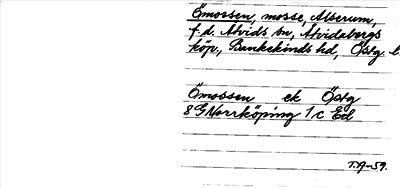 Ömossen, mosse, Alserum,
f.d. Åtvids sn, Åtvidabergs
köp., Bankekinds hd, Östg. l.
Ömossen ek Östg
8 G Norrköping 1 c Ed
T.A-59.